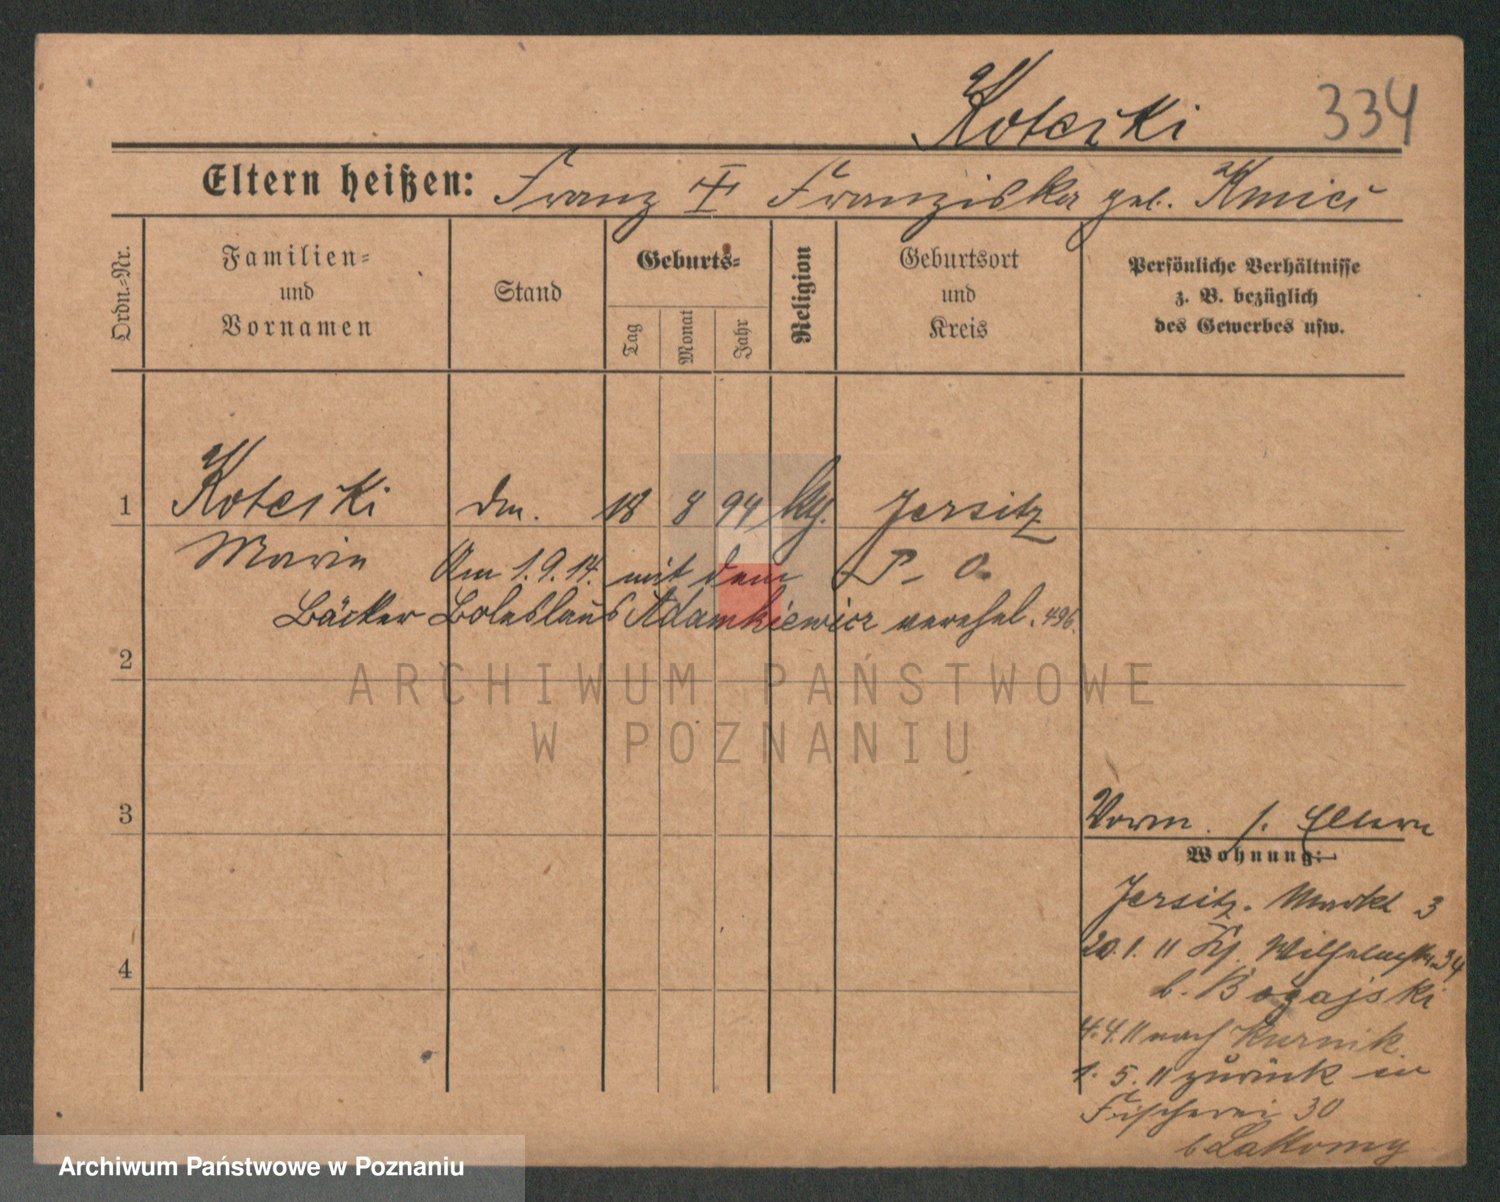 Koterski 334
Eltern heißen: Franz ‡ Franziska geb. Kmieć
Ordn.-Nr.
Familien-
und
Vornamen
Stand
Geburts-
Tag
Monat
Jahr
Religion
Geburtsort
und
Kreis
Persönliche Verhältnisse
z. B. bezüglich
des Gewerbes usw.
1 Koterski Dm. 18 8 94 kth. Jersitz
Maria Am 1.9.14. mit dem P. O.
Bäcker Boleslaus Adamkiewicz verehel. 496.
2
ARCHIWUM PAŃSTWOWE
W POZNANIU
3
Vorm. s. Eltern
Wohnung:
Jersitz. Markt 3
4
20.1.11 Wilhelmstr. 34
b. Bogajski
4.4.11 nach Kurnik.
1.5.11 zurück in
Fischerei 30
b Lakomy
Archiwum Państwowe w Poznaniu